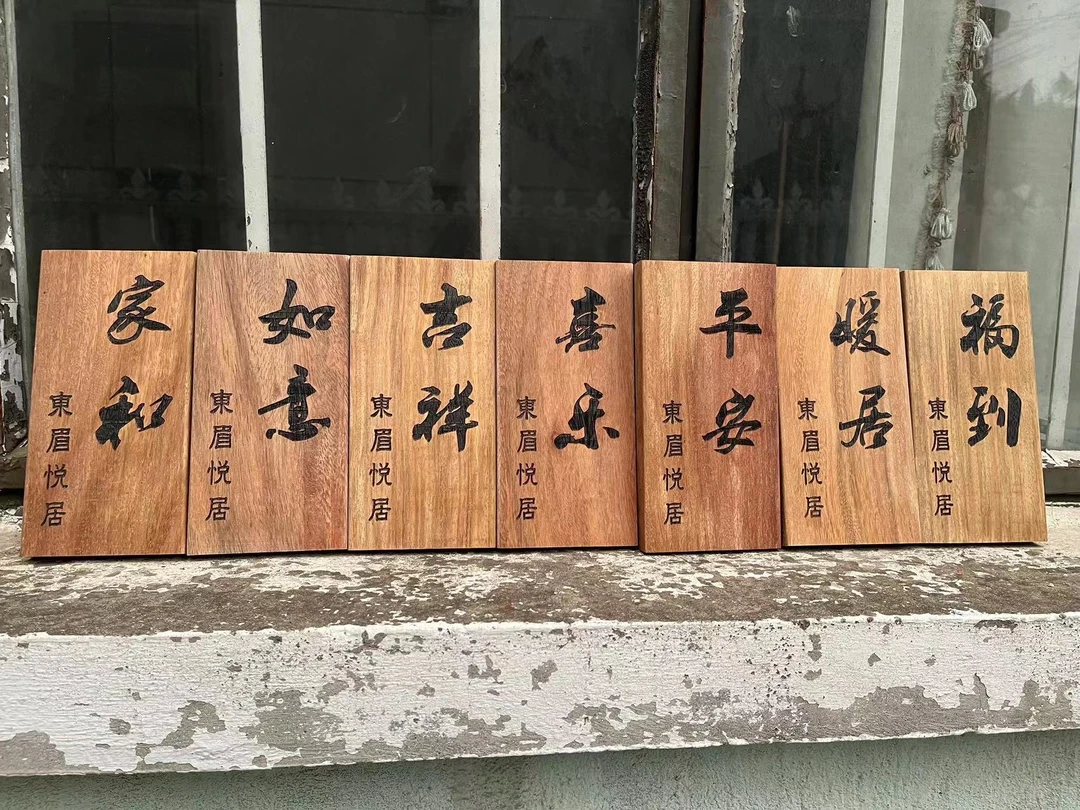 家和
東眉悦居
如意
東眉悦居
吉祥
東眉悦居
喜乐
東眉悦居
平安
東眉悦居
暖居
東眉悦居
福到
東眉悦居